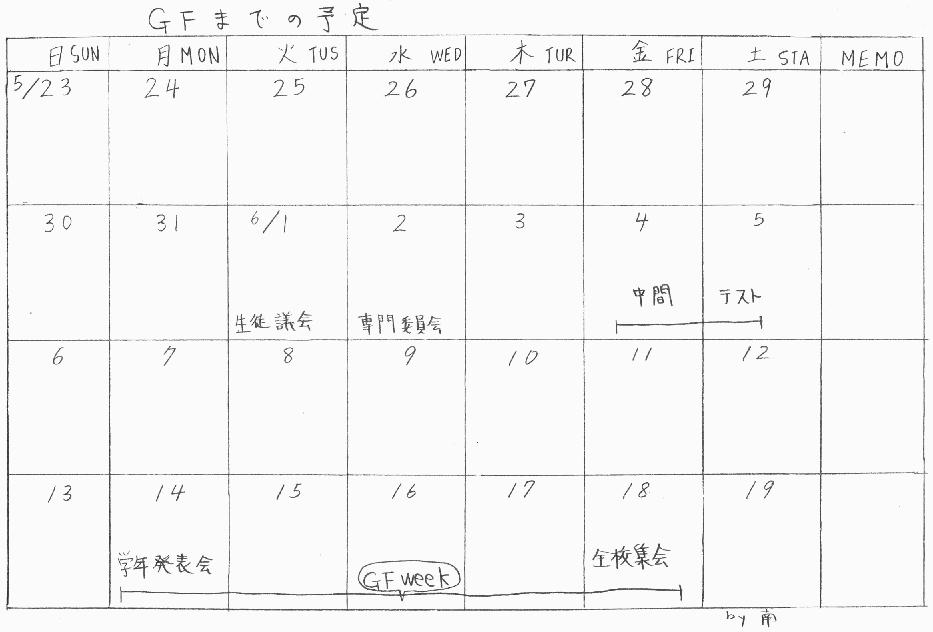 GFまでの予定
日 SUN 月 MON 火 TUS 水 WED 木 TUR 金 FRI 土 STA MEMO
5/23 24 25 26 27 28 29
30 31 6/1 2 3 4 5
中間 テスト
生徒議会 専門委員会
6 7 8 9 10 11 12
13 14 15 16 17 18 19
学年発表会 全校集会
GF week
by 南